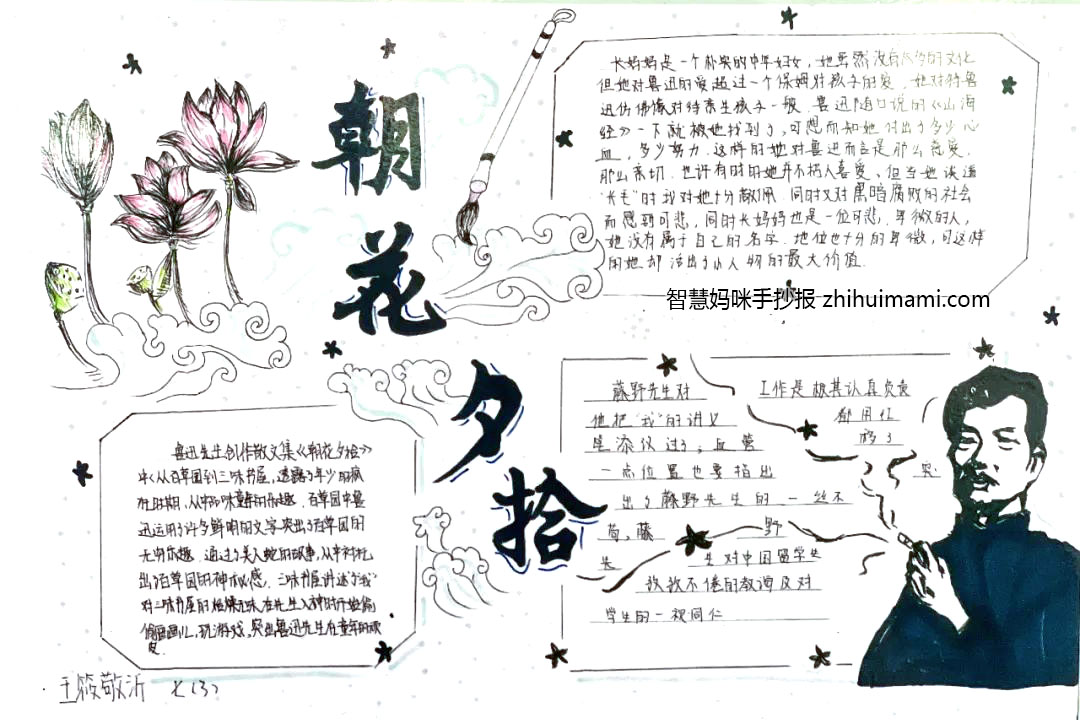 朝
花
夕
拾
长妈妈是一个朴实的中年妇女，她虽然没有太多的文化
但她对鲁迅的爱超过一个保姆对孩子的爱，她对待鲁
迅仿佛像对待亲生孩子一般，鲁迅随口说的《山海
经》一下就被她找到了，可想而知她付出了多少心
血，多少努力.这样的她对鲁迅而言是那么慈爱，
那么亲切.也许有时的她并不招人喜爱、但当她谈道
"长毛"时我对她十分敬佩.同时又对黑暗腐败的社会
而感到可悲，同时长妈妈也是一位可悲，卑微的人，
她没有属于自己的名字.地位也十分的卑微，可这样
的她却活出了小人物的最大价值.
智慧妈咪手抄报 zhihuimami.com
藤野先生对 工作是极其认真负责
他把"我"的讲义 都用红
笔添仪过了；血管 移了
一点位置也要指出
出了藤野先生的一丝不
苟，藤 野
先 生对中国留学生
孜孜不倦的教诲及对
学生的一视同仁
鲁迅先生创作散文集《朝花夕拾》
中《从百草园到三味书屋，透露了年少的疯
狂时期，从中品味童年的乐趣.百草园中鲁
迅运用了许多鲜明的文字突出了百草园的
无穷乐趣.通过了美人蛇的故事，从中衬托
出了百草园的神秘感.三味书屋讲述了"我"
对三味书屋的枯燥无味在先生入神时开始偷
偷画画儿，玩游戏，突出鲁迅先生在童年的顽
皮.
王筱敬沂 七(3)